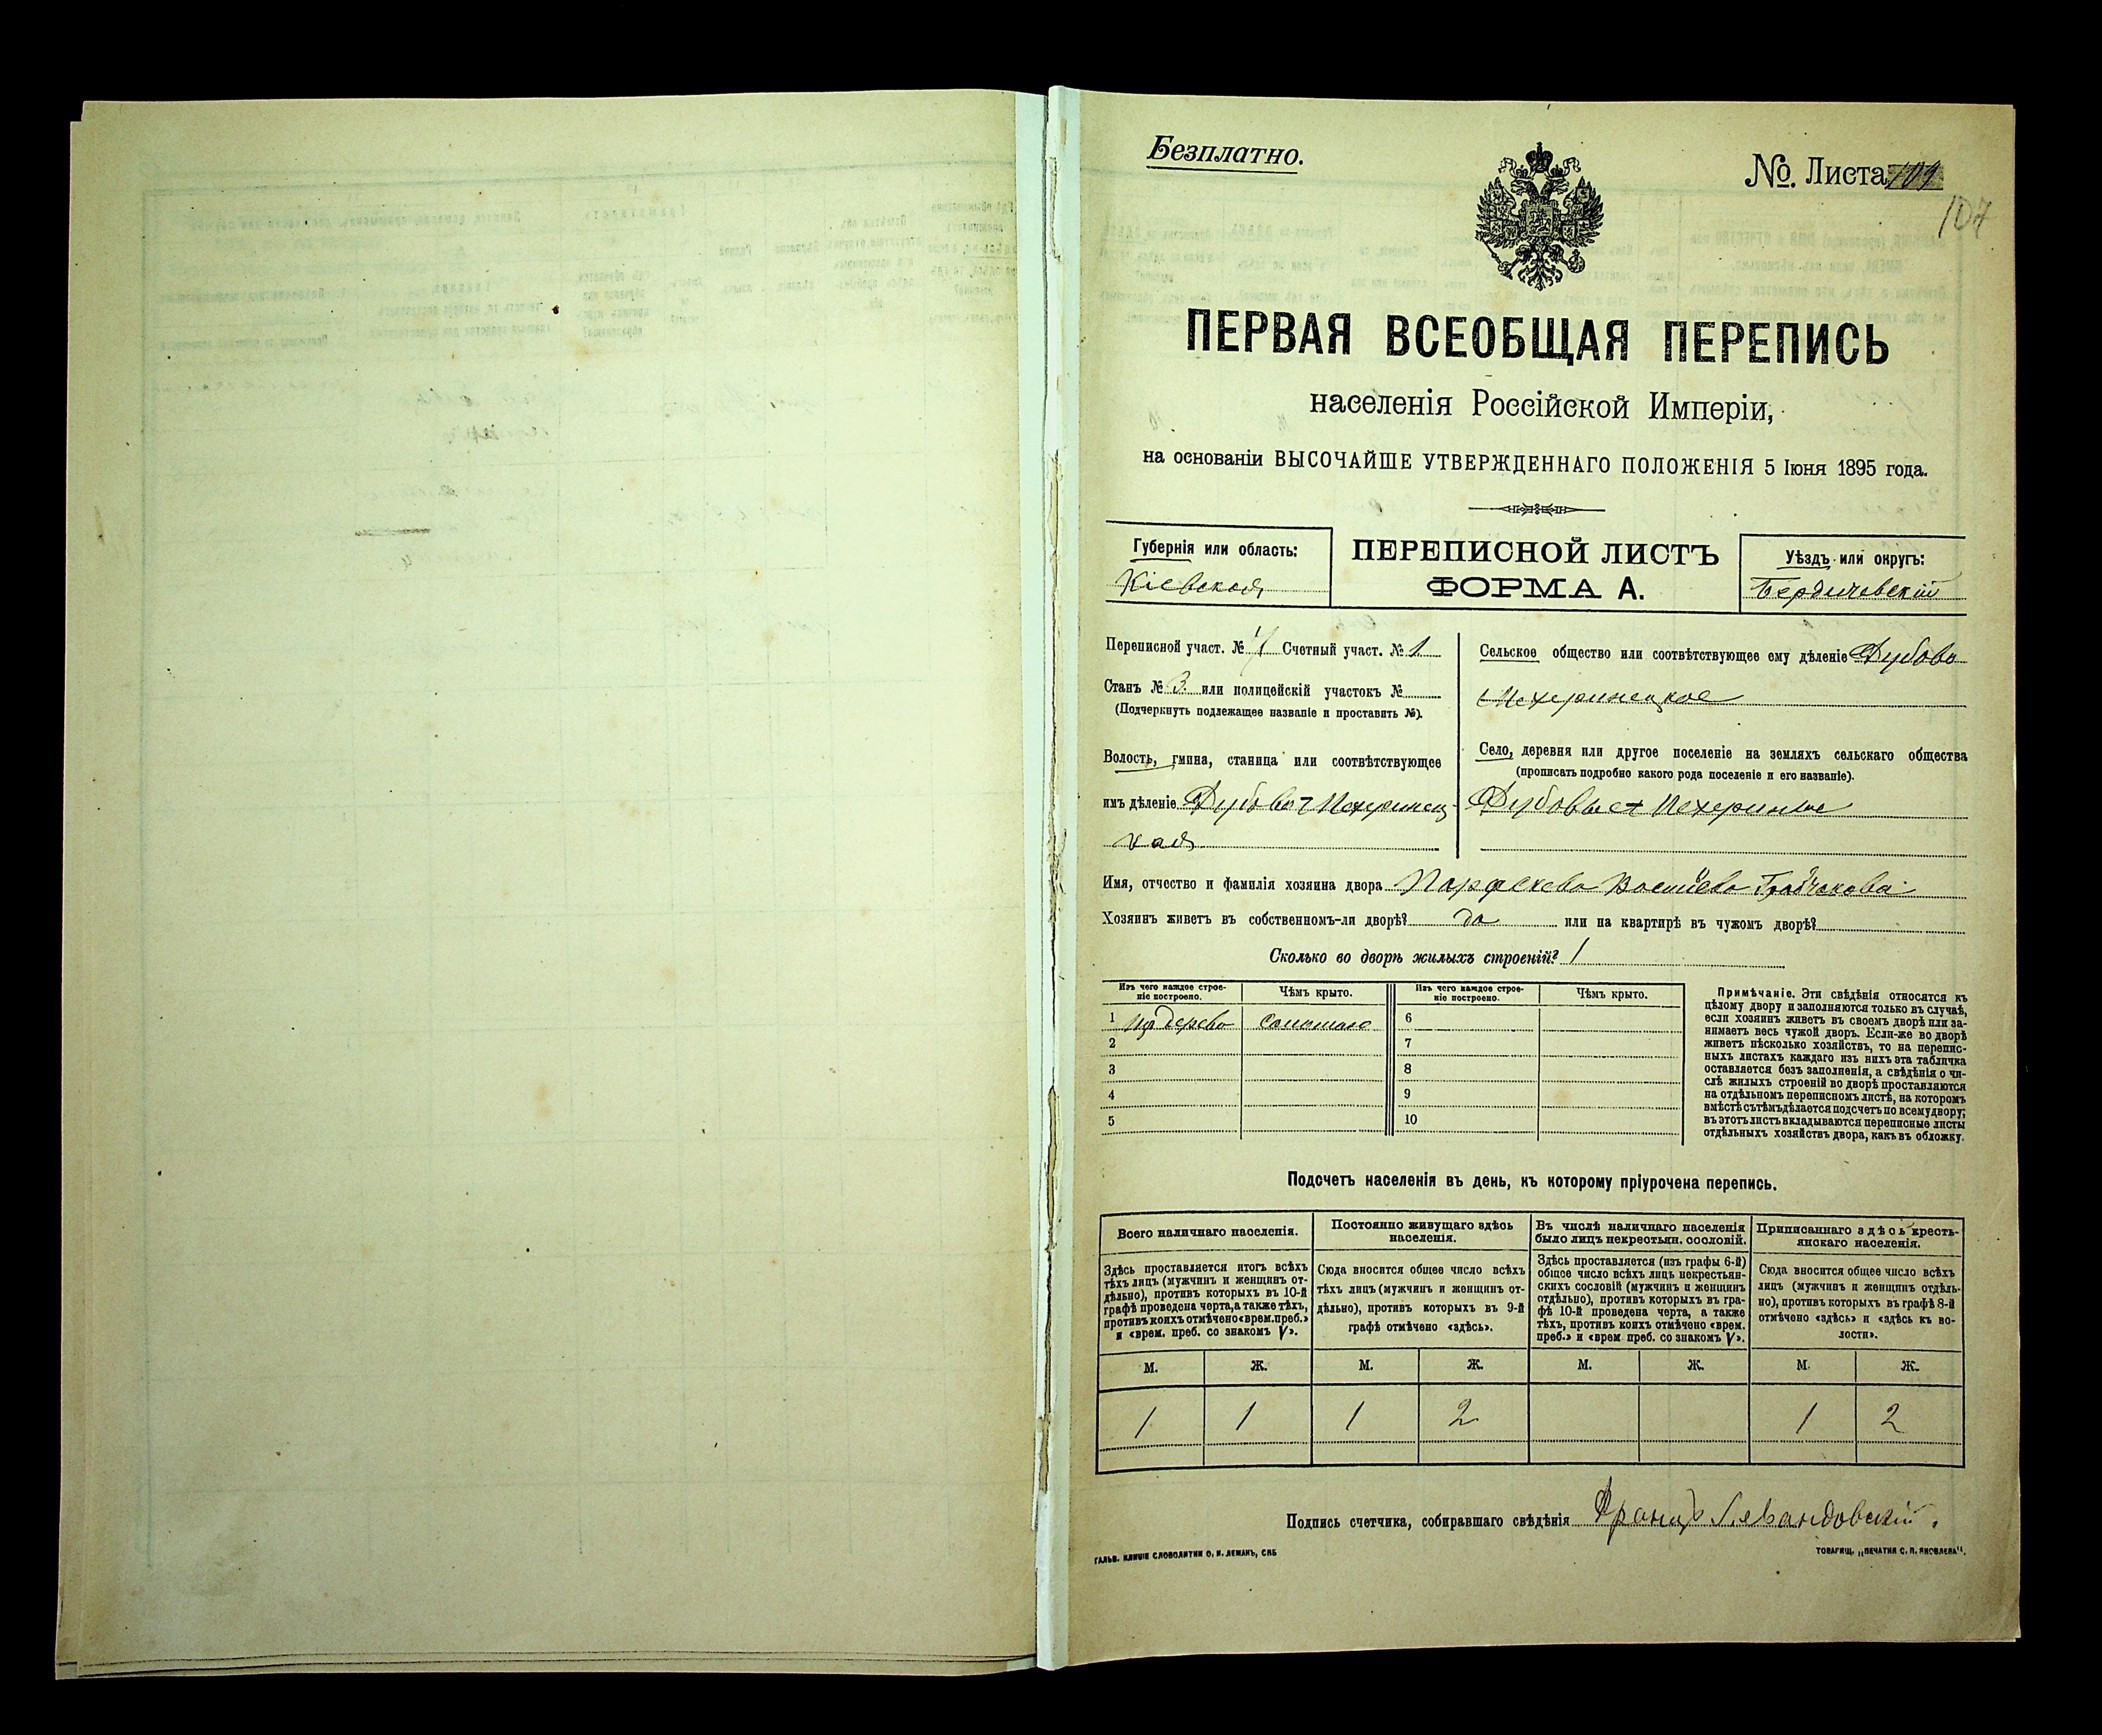 Безплатно.
№. Листа 109
107
ПЕРВАЯ ВСЕОБЩАЯ ПЕРЕПИСЬ
населенія Россійской Имперіи,
на основаніи ВЫСОЧАЙШЕ УТВЕРЖДЕННАГО ПОЛОЖЕНІЯ 5 Іюня 1895 года.
Губернія или область:
Кіевская
ПЕРЕПИСНОЙ ЛИСТЪ
ФОРМА А.
Уѣздъ или округъ:
Бердичевскій
Переписной участ. № Счетный участ. № 1
Станъ № 3. или полицейскій участокъ №
(Подчеркнуть подлежащее названіе и проставить №).
Волость, гмина, станица или соотвѣтствующее
имъ дѣленіе Дубово-Мехеринец-
кая
Сельское общество или соотвѣтствующее ему дѣленіе Дубово
Мехеринецкое
Село, деревня или другое поселеніе на земляхъ сельскаго общества
(прописать подробно какого рода поселеніе и его названіе).
Дубовые Мехеринце
Имя, отчество и фамилія хозяина двора Параскева
Хозяинъ живетъ въ собственномъ-ли дворѣ? да или на квартирѣ въ чужомъ дворѣ?
Сколько во дворѣ жилыхъ строеній? 1
Изъ чего каждое строе-
ніе построено.
Чѣмъ крыто.
Изъ чего каждое строе-
ніе построено.
Чѣмъ крыто.
1 Из дерева соломою 6
2 7
3 8
4 9
5 10
Примѣчаніе. Эти свѣдѣнія относятся къ
цѣлому двору и заполняются только въ случаѣ,
если хозяинъ живетъ въ своемъ дворѣ или за-
нимаетъ весь чужой дворъ. Если-же во дворѣ
живетъ нѣсколько хозяйствъ, то на перепис-
ныхъ листахъ каждаго изъ нихъ эта табличка
оставляется безъ заполненія, а свѣдѣнія о чи-
слѣ жилыхъ строеній во дворѣ проставляются
на отдѣльномъ переписномъ листѣ, на которомъ
вмѣстѣ съ тѣмъ дѣлается подсчетъ по всему двору;
въ этотъ листъ вкладываются переписные листы
отдѣльныхъ хозяйствъ двора, какъ въ обложку.
Подсчетъ населенія въ день, къ которому пріурочена перепись.
Всего наличнаго населенія.
Здѣсь проставляется итогъ всѣхъ
тѣхъ лицъ (мужчинъ и женщинъ от-
дѣльно), противъ которыхъ въ 10-й
графѣ проведена черта, а также тѣхъ,
противъ коихъ отмѣчено «врем. преб.»
и «врем. преб. со знакомъ V».
Постоянно живущаго здѣсь
населенія.
Сюда вносится общее число всѣхъ
тѣхъ лицъ (мужчинъ и женщинъ от-
дѣльно), противъ которыхъ въ 9-й
графѣ отмѣчено «здѣсь».
Въ числѣ наличнаго населенія
было лицъ некрестьян. сословій.
Здѣсь проставляется (изъ графы 6-й)
общее число всѣхъ лицъ некрестьян-
скихъ сословій (мужчинъ и женщинъ
отдѣльно), противъ которыхъ въ гра-
фѣ 10-й проведена черта, а также
тѣхъ, противъ коихъ отмѣчено «врем.
преб.» и «врем преб. со знакомъ V».
Приписаннаго здѣсь кресть-
янскаго населенія.
Сюда вносится общее число всѣхъ
лицъ (мужчинъ и женщинъ отдѣль-
но), противъ которыхъ въ графѣ 8-й
отмѣчено «здѣсь» и «здѣсь къ во-
лости».
М. Ж. М. Ж. М. Ж. М. Ж.
1 1 1 2 1 2
Подпись счетчика, собиравшаго свѣдѣнія Францъ Левандовскій.
ГАЛЬВ. КЛИШЕ СЛОВОЛИТНИ О. И. ЛЕМАНЪ, СПБ
ТОВАРИЩ. „ПЕЧАТНЯ С. П. ЯКОВЛЕВА“.